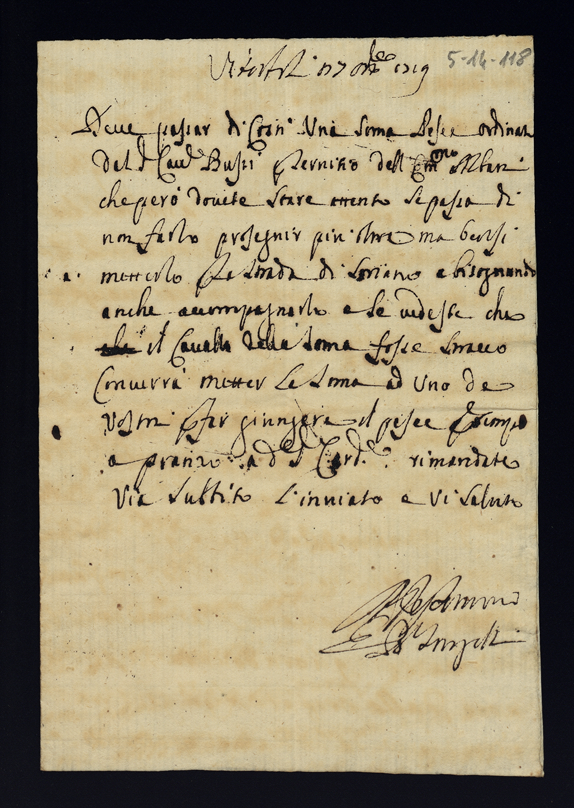 Viterbo 17 8bre 1719
5-14-118
Deve passar di Costì Una Soma Pesce ordinata
dal S.r Cau.re Bussi per servitio dell' Em.mo Albani
che però dovete Stare attento se passa di
non farlo proseguir più oltre ma bensì
metterlo per la strada di Soriano e bisognando
anche accompagnarlo e se vedeste che
il Cavallo della Soma fosse stracco
Converrà metter la Soma ad Uno de
Vostri per far giungere il pesce per tempo
a pranzo a d.o S.r Card.e rimandate
Via Subbito l'inviato e Vi Saluto